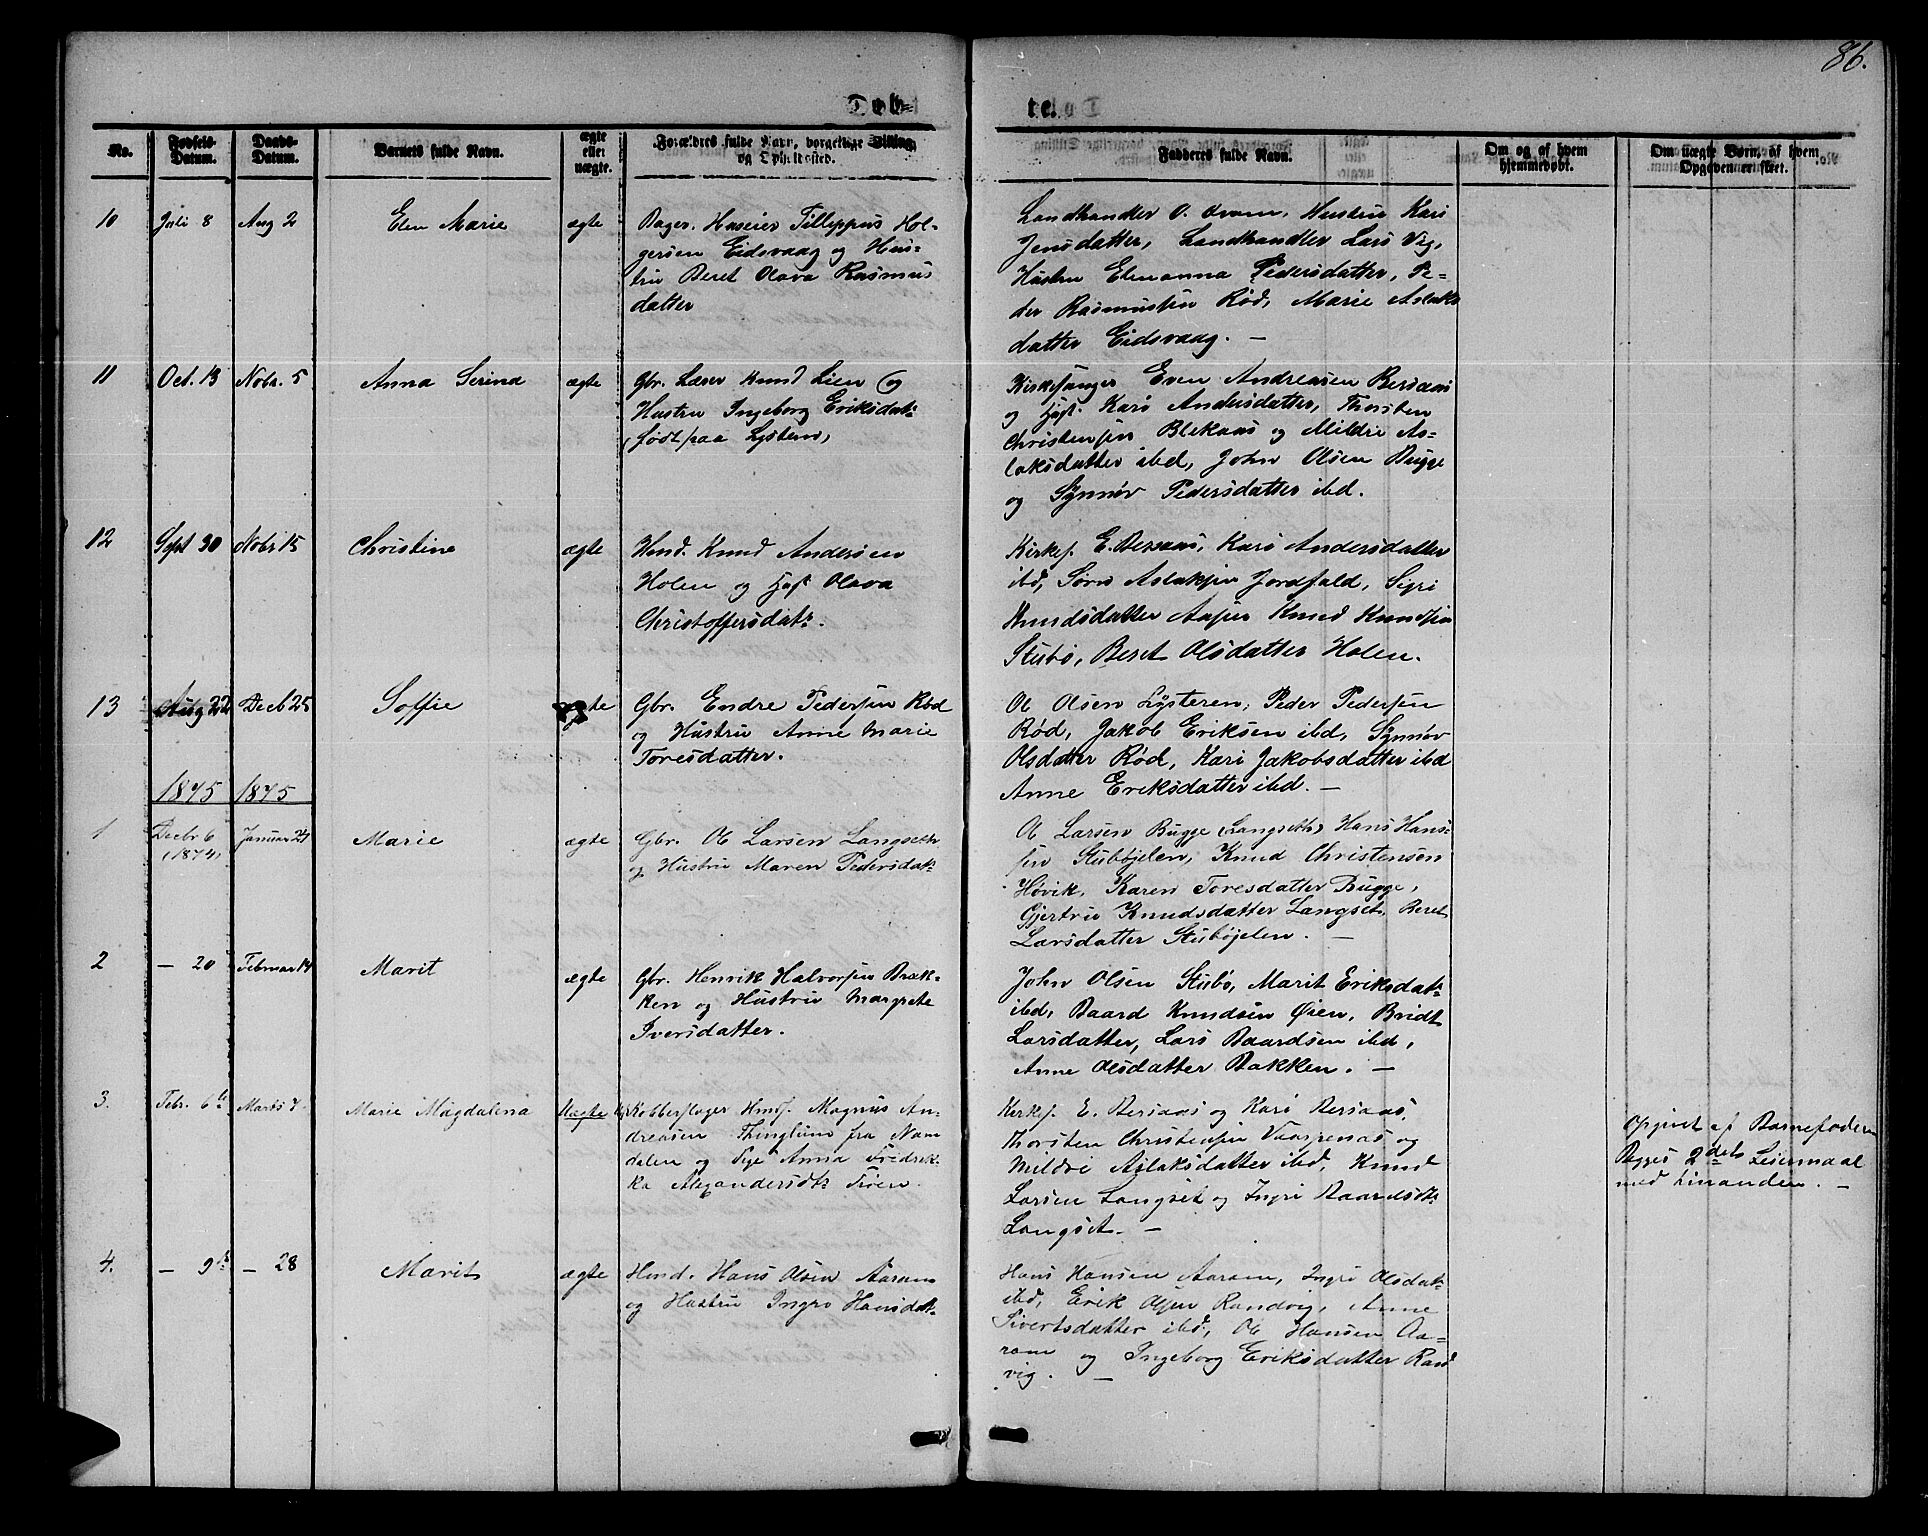 86.
Døb-
te.
No.
Fødsels-Datum.
Daabs-Datum.
Barnets fulde Navn.
ægte eller uægte.
Forældres fulde Navn, borgerlige Stilling og Opholdssted.
Fadderes fulde Navn.
Om og af hvem hjemmedøbt.
Om uægte Børn, af hvem Opgaven er skeet.
10 Juli 8 Aug 2 Elen Marie ægte
Bager. Huseier Fillippus Hol-
gersen Eidsvaag og Hus-
tru Beret Olava Rasmus
datter
Landhandler O. Svom. Hustru Kari
Jensdatter, Landhandler Lars Vig,
Hustru Elenanna Pedersdatter, Pe-
der Rasmussen Rød, Marie Aslaks
datter Eidsvaag. —
11 Oct. 13 Nobr. 5 Anna Serina ægte
Gbr. Lærer Knud Lien og
Hustru Ingeborg Eriksdatr
(født paa Lysteren)
Kirkesanger Even Andreasen Bersaas
og Hust. Kari Andersdatter, Thorsten
Christensen Blekaas og Mildri As-
laksdatter ibd, John Olsen Bugge
og Synnøv Pedersdatter ibd.
12 Sept 30 Nobr 15 Christine ægte
Hmd. Knud Andersen
Holen og Hust Olava
Christoffersdatr.
Kirkes. E. Bersaas, Kari Andersdatter
ibd, Søren Aslaksen Jordfald, Sigri
Knudsdatter Knud Knudsen
Stubø, Beret Olsdatter Holen.
13 Aug 22 Decb 25 Soffie ægte
Gbr. Endre Pedersen Rød
og Hustru Anne Marie
Toresdatter.
Ol Olsen Lysteren, Peder Pedersen
Rød, Jakob Eriksen ibd, Synnøv
Olsdatter Rød, Kari Jakobsdatter ibd
Anne Eriksdatter ibd. —
1875 1875
1 Decbr 6 (1874) Januar 24 Marie ægte
Gbr. Ol Larsen Langseth
og Hustru Maren Pedersdatr
Ol Larsen Bugge (Langseth) Hans Han-
sen Stubøjelen, Knud Christensen
Høvik, Karen Toresdatter Bugge,
Gjertru Knudsdatter Langset, Beret
Larsdatter Stubøjelen. —
2 — 20 Februar 14 Marit ægte
Gbr. Henrik Halvorsen Bræk-
ken og Hustru Margrete
Iversdatter.
John Olsen Stubø, Marit Eriksdatr
ibd, Baard Knudsen Øien, Bridt
Larsdatter, Lars Baardsen ibd,
Anne Olsdatter Bakken. —
3. Febr. 6te Marts 7 Marie Magdalena Uægte
Kobberslager Magnus An-
dreasen Thinglum fra Nam
dalen og Pige Anna Fredrik-
ka Alexandersdtr Tiøen.
Kirkes. E. Bersaas og Kari Bersaas,
Thorsten Christensen Vaaspenas og
Mildri Aslaksdatter ibd, Knud
Larsen Langset og Ingri Baardsdtr
Langset. —
Opgivet af Barnefaderen
Begges 2det Leiermaal
med hinanden. —
4. — 9de — 28 Marit ægte
Hmd. Hans Olsen Aaram
og Hustru Ingro Hansdatr
Hans Hansen Aaram, Ingri Olsdatr
ibd, Erik Olsen Randvig, Anne
Sivertsdatter ibd, Ol Hansen Aa-
ram og Ingeborg Eriksdatter Rand
vig. —